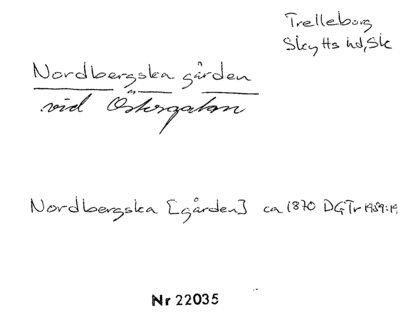 Trelleborg
Skytts hd, Sk
Nordbergska gården
vid Östergatan
Nordbergska [gården] ca 1870 DGTr 1959:19
Nr 22035